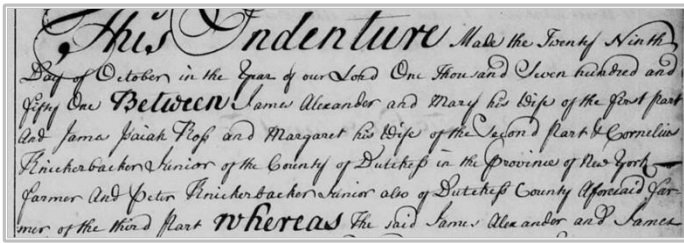 This Indenture Made the Twenty Ninth
Day of October in the Year of our Lord One Thousand Seven hundred and
fifty One Between James Alexander and Mary his Wife of the first part
And James Isaiah Ross and Margaret his Wife of the Second Part & Cornelius
Knickerbacker Junior of the County of Dutchess in the Province of New York
farmer And Peter Knickerbacker Junior also of Dutchess County Aforesaid far-
mer of the third Part Whereas The said James Alexander and James